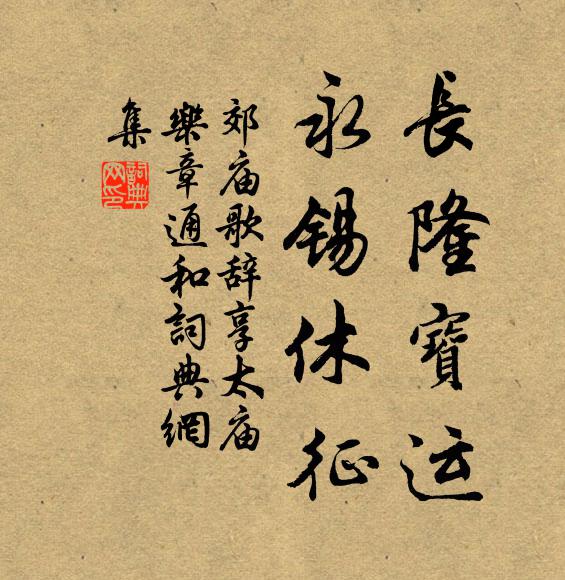 長隆寶运
永锡休征
郊庙歌辞享太庙
樂章通和詞典網
集
詞典
网印